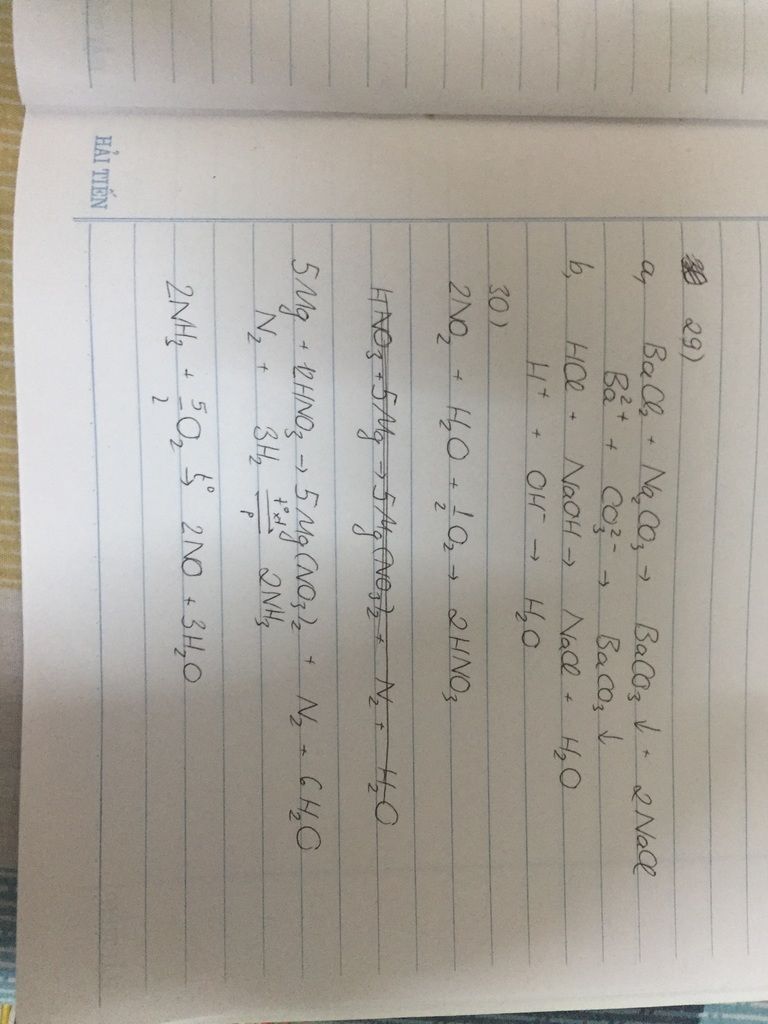 HẢI TIẾN
29)
a, BaCl₂ + Na₂CO₃ → BaCO₃ ↓ + 2NaCl
Ba²⁺ + CO₃²⁻ → BaCO₃ ↓
b, HCl + NaOH → NaCl + H₂O
H⁺ + OH⁻ → H₂O
30)
2NO₂ + H₂O + 1/2 O₂ → 2HNO₃
HNO₃ + 5Mg → 5Mg(NO₃)₂ + N₂ + H₂O
5Mg + 12HNO₃ → 5Mg(NO₃)₂ + N₂ + 6H₂O
N₂ + 3H₂ ⇌ (t°, xt, p) 2NH₃
2NH₃ + 5/2 O₂ →(t°) 2NO + 3H₂O